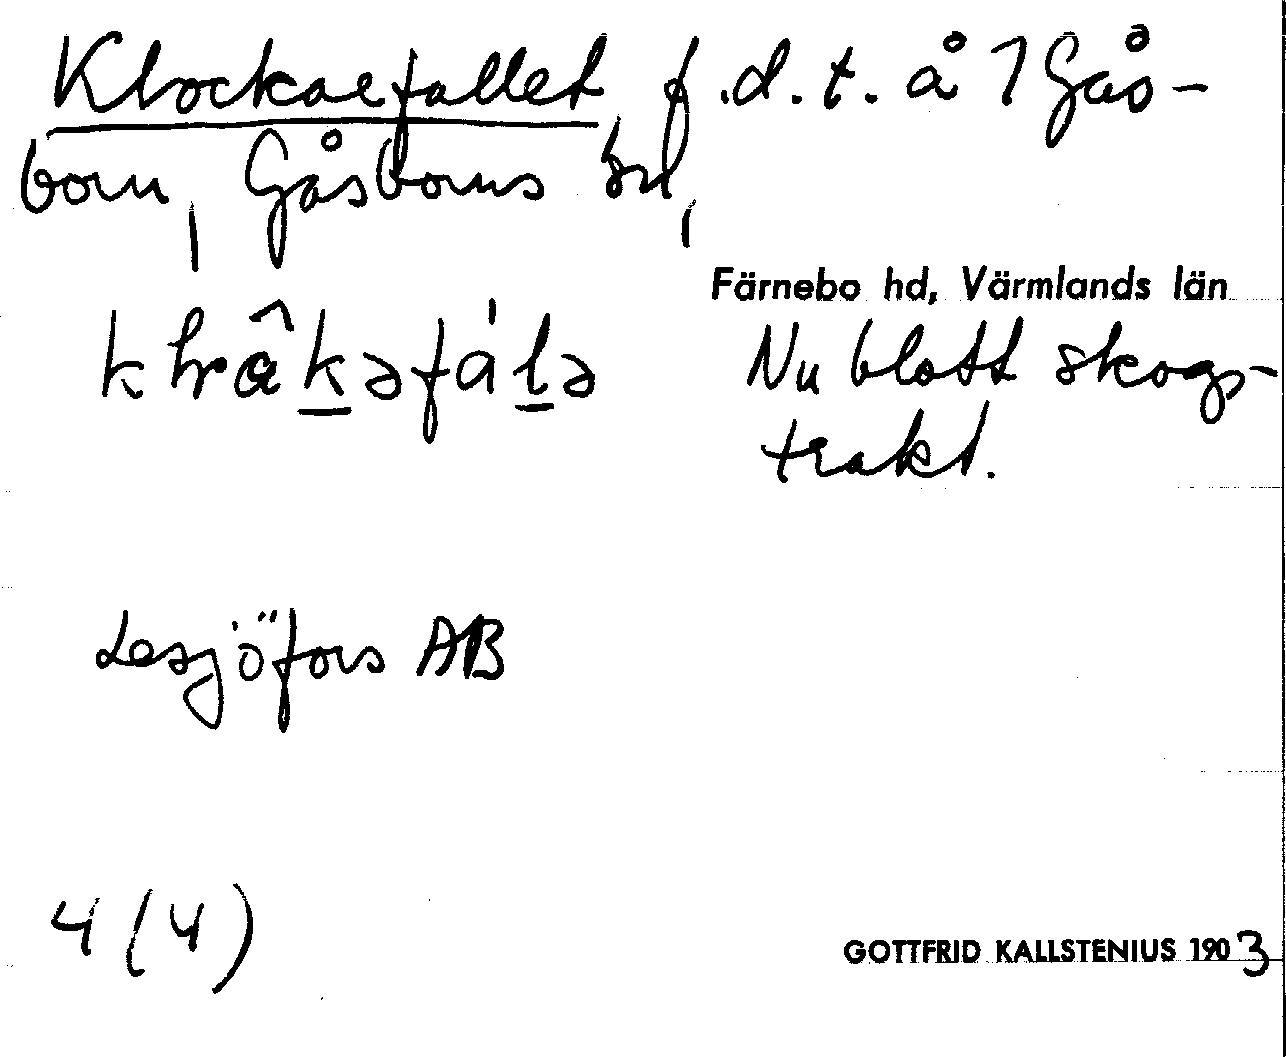 Klockarefallet f.d.t. å 7 Gås-
born, Gåsborns sn,
Färnebo hd, Värmlands län
Nu blott skogs-
trakt.
Lesjöfors AB
4 (4)
GOTTFRID KALLSTENIUS 1903